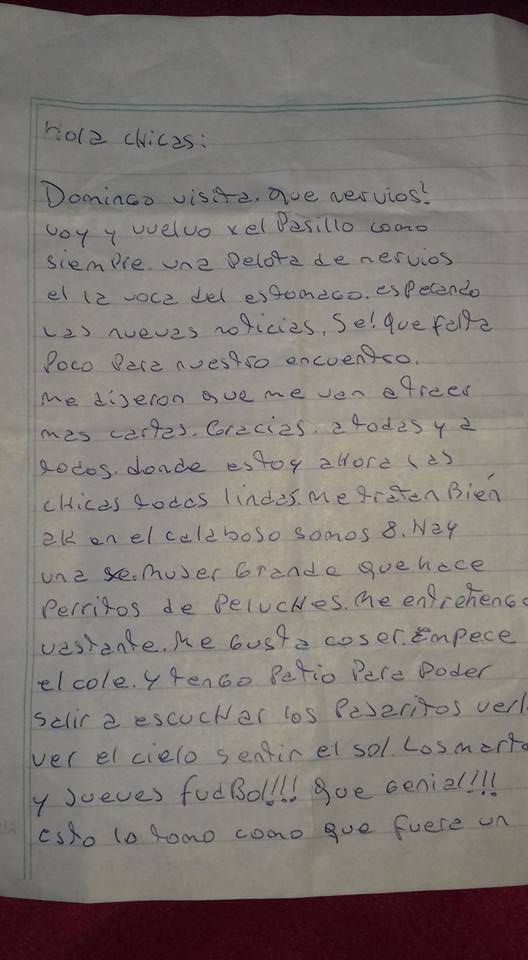 Hola chicas:
Domingo visita. que nervios!
voy y vuelvo x el Pasillo como
siempre. una Pelota de nervios
el la voca del estomago. esperando
las nuevas noticias. Se! que falta
Poco Para nuestro encuentro.
Me dijeron que me van atraer
mas cartas. Gracias. a todas y a
todos. donde estoy ahora las
chicas todas lindas. me tratan Bién
ak en el calaboso somos 8. Hay
una muJer Grande que hace
Perritos de Peluches. Me entretengo
vastante. Me Gusta coser. Empece
el cole. y tengo Patio Para Poder
Salir a escuchar los Pajaritos
ver el cielo sentir el sol. Los mart
y Jueves fudBol!!! que Genial!!!
esto lo tomo como que fuera un